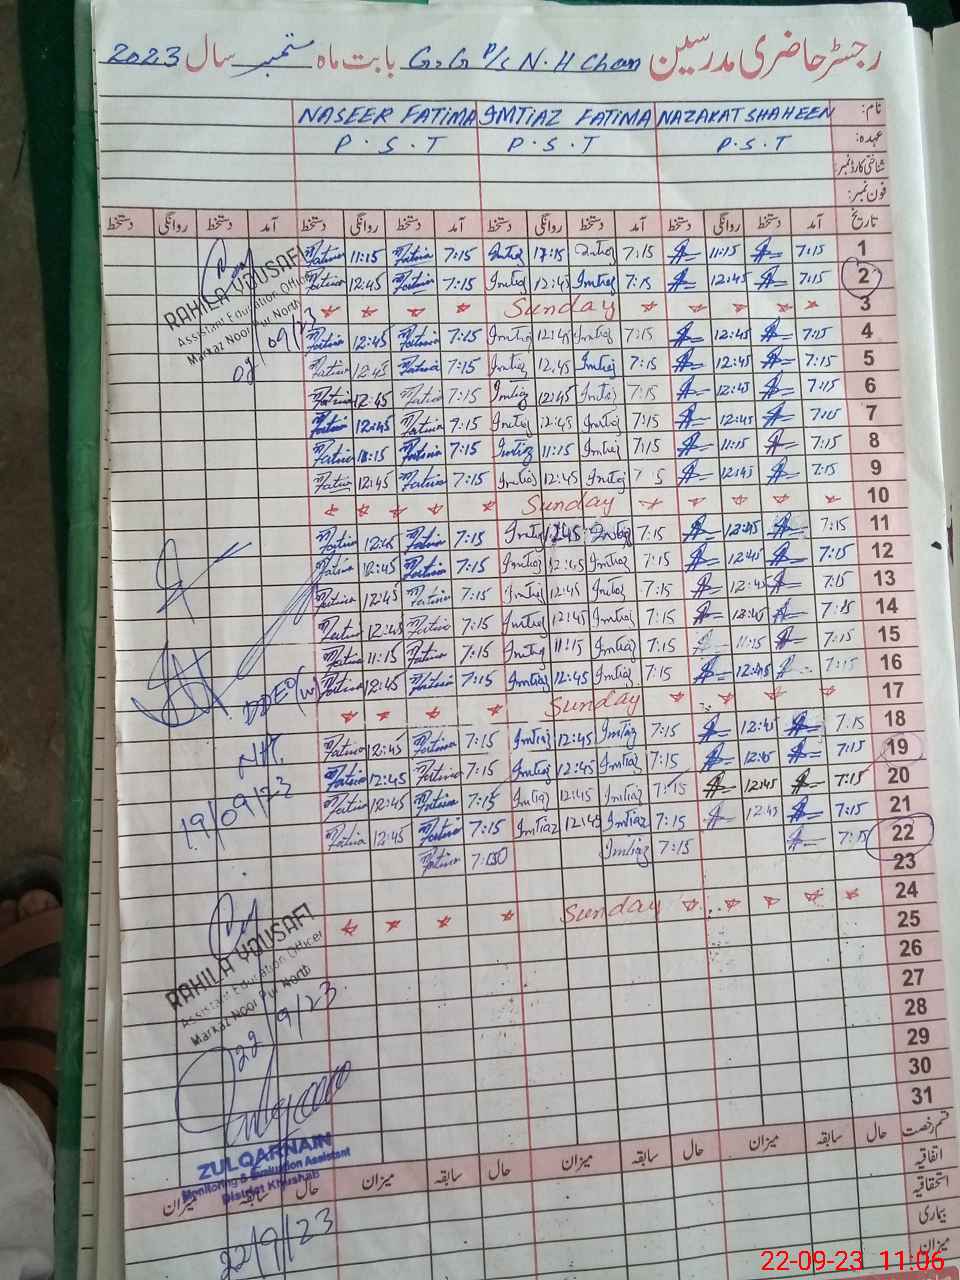 رجسٹر حاضری مدرسین G.G P/S N.H Chan بابت ماہ ستمبر سال 2023
نام: NAZAKAT SHAHEEN IMTIAZ FATIMA NASEER FATIMA
عہدہ: P.S.T P.S.T P.S.T
شناختی کارڈ نمبر:
فون نمبر:
تاریخ آمد دستخط روانگی دستخط آمد دستخط روانگی دستخط آمد دستخط روانگی دستخط آمد دستخط روانگی دستخط
1 7:15 11:15 7:15 Imtiaz Imtiaz 7:15 Fatima 11:15 Fatima
2 7:15 12:45 7:15 Imtiaz 12:45 Imtiaz 7:15 Fatima 12:45 Fatima
3 Sunday
4 7:15 12:45 7:15 Imtiaz 12:45 Imtiaz 7:15 Fatima 12:45 Fatima
5 7:15 12:45 7:15 Imtiaz 12:45 Imtiaz 7:15 Fatima 12:45 Fatima
6 7:15 12:45 7:15 Imtiaz 12:45 Imtiaz 7:15 Fatima 12:45 Fatima
7 7:15 12:45 7:15 Imtiaz 12:45 Imtiaz 7:15 Fatima 12:45 Fatima
8 7:15 11:15 7:15 Imtiaz 11:15 Imtiaz 7:15 Fatima 11:15 Fatima
9 7:15 12:45 Imtiaz 12:45 Imtiaz 7:15 Fatima 12:45 Fatima
10 Sunday
11 7:15 12:45 7:15 Imtiaz 12:45 Imtiaz 7:15 Fatima 12:45 Fatima
12 7:15 12:45 7:15 Imtiaz 12:45 Imtiaz 7:15 Fatima 12:45 Fatima
13 7:15 12:45 7:15 Imtiaz 12:45 Imtiaz 7:15 Fatima 12:45 Fatima
14 7:15 12:45 7:15 Imtiaz 12:45 Imtiaz 7:15 Fatima 12:45 Fatima
15 7:15 11:15 7:15 Imtiaz 11:15 Imtiaz 7:15 Fatima 11:15 Fatima
16 7:15 12:45 7:15 Imtiaz 12:45 Imtiaz 7:15 Fatima 12:45 Fatima
17 Sunday
18 7:15 12:45 7:15 Imtiaz 12:45 Imtiaz 7:15 Fatima 12:45 Fatima
19 7:15 12:45 7:15 Imtiaz 12:45 Imtiaz 7:15 Fatima 12:45 Fatima
20 7:15 12:45 7:15 Imtiaz 12:45 Imtiaz 7:15 Fatima 12:45 Fatima
21 7:15 12:45 7:15 Imtiaz 12:45 Imtiaz 7:15 Fatima 12:45 Fatima
22 7:15 7:15 Imtiaz Fatima
23
24 Sunday
25
26
27
28
29
30
31
RAHILA YOUSAFI
Assistant Education Officer
Markaz Noor Pur North
DDEO(W)
NPT.
19/09/23
RAHILA YOUSAFI
Assistant Education Officer
Markaz Noor Pur North
22/9/23
ZULQARNAIN
Monitoring & Evaluation Assistant
District Khushab
22/9/23
قسم رخصت حال سابقہ میزان حال سابقہ میزان حال سابقہ میزان حال سابقہ میزان
اتفاقیہ
استحقاقیہ
بیماری
میزان
22-09-23 11:06